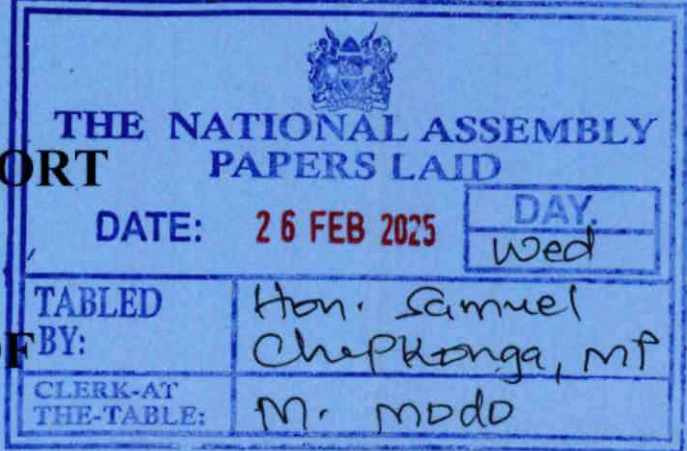 THE NATIONAL ASSEMBLY
ORT PAPERS LAID
DATE: 26 FEB 2025 DAY.
Wed
TABLED BY: Hon. Samuel
OF Chepkonga, MP
CLERK-AT THE-TABLE: M. Modo